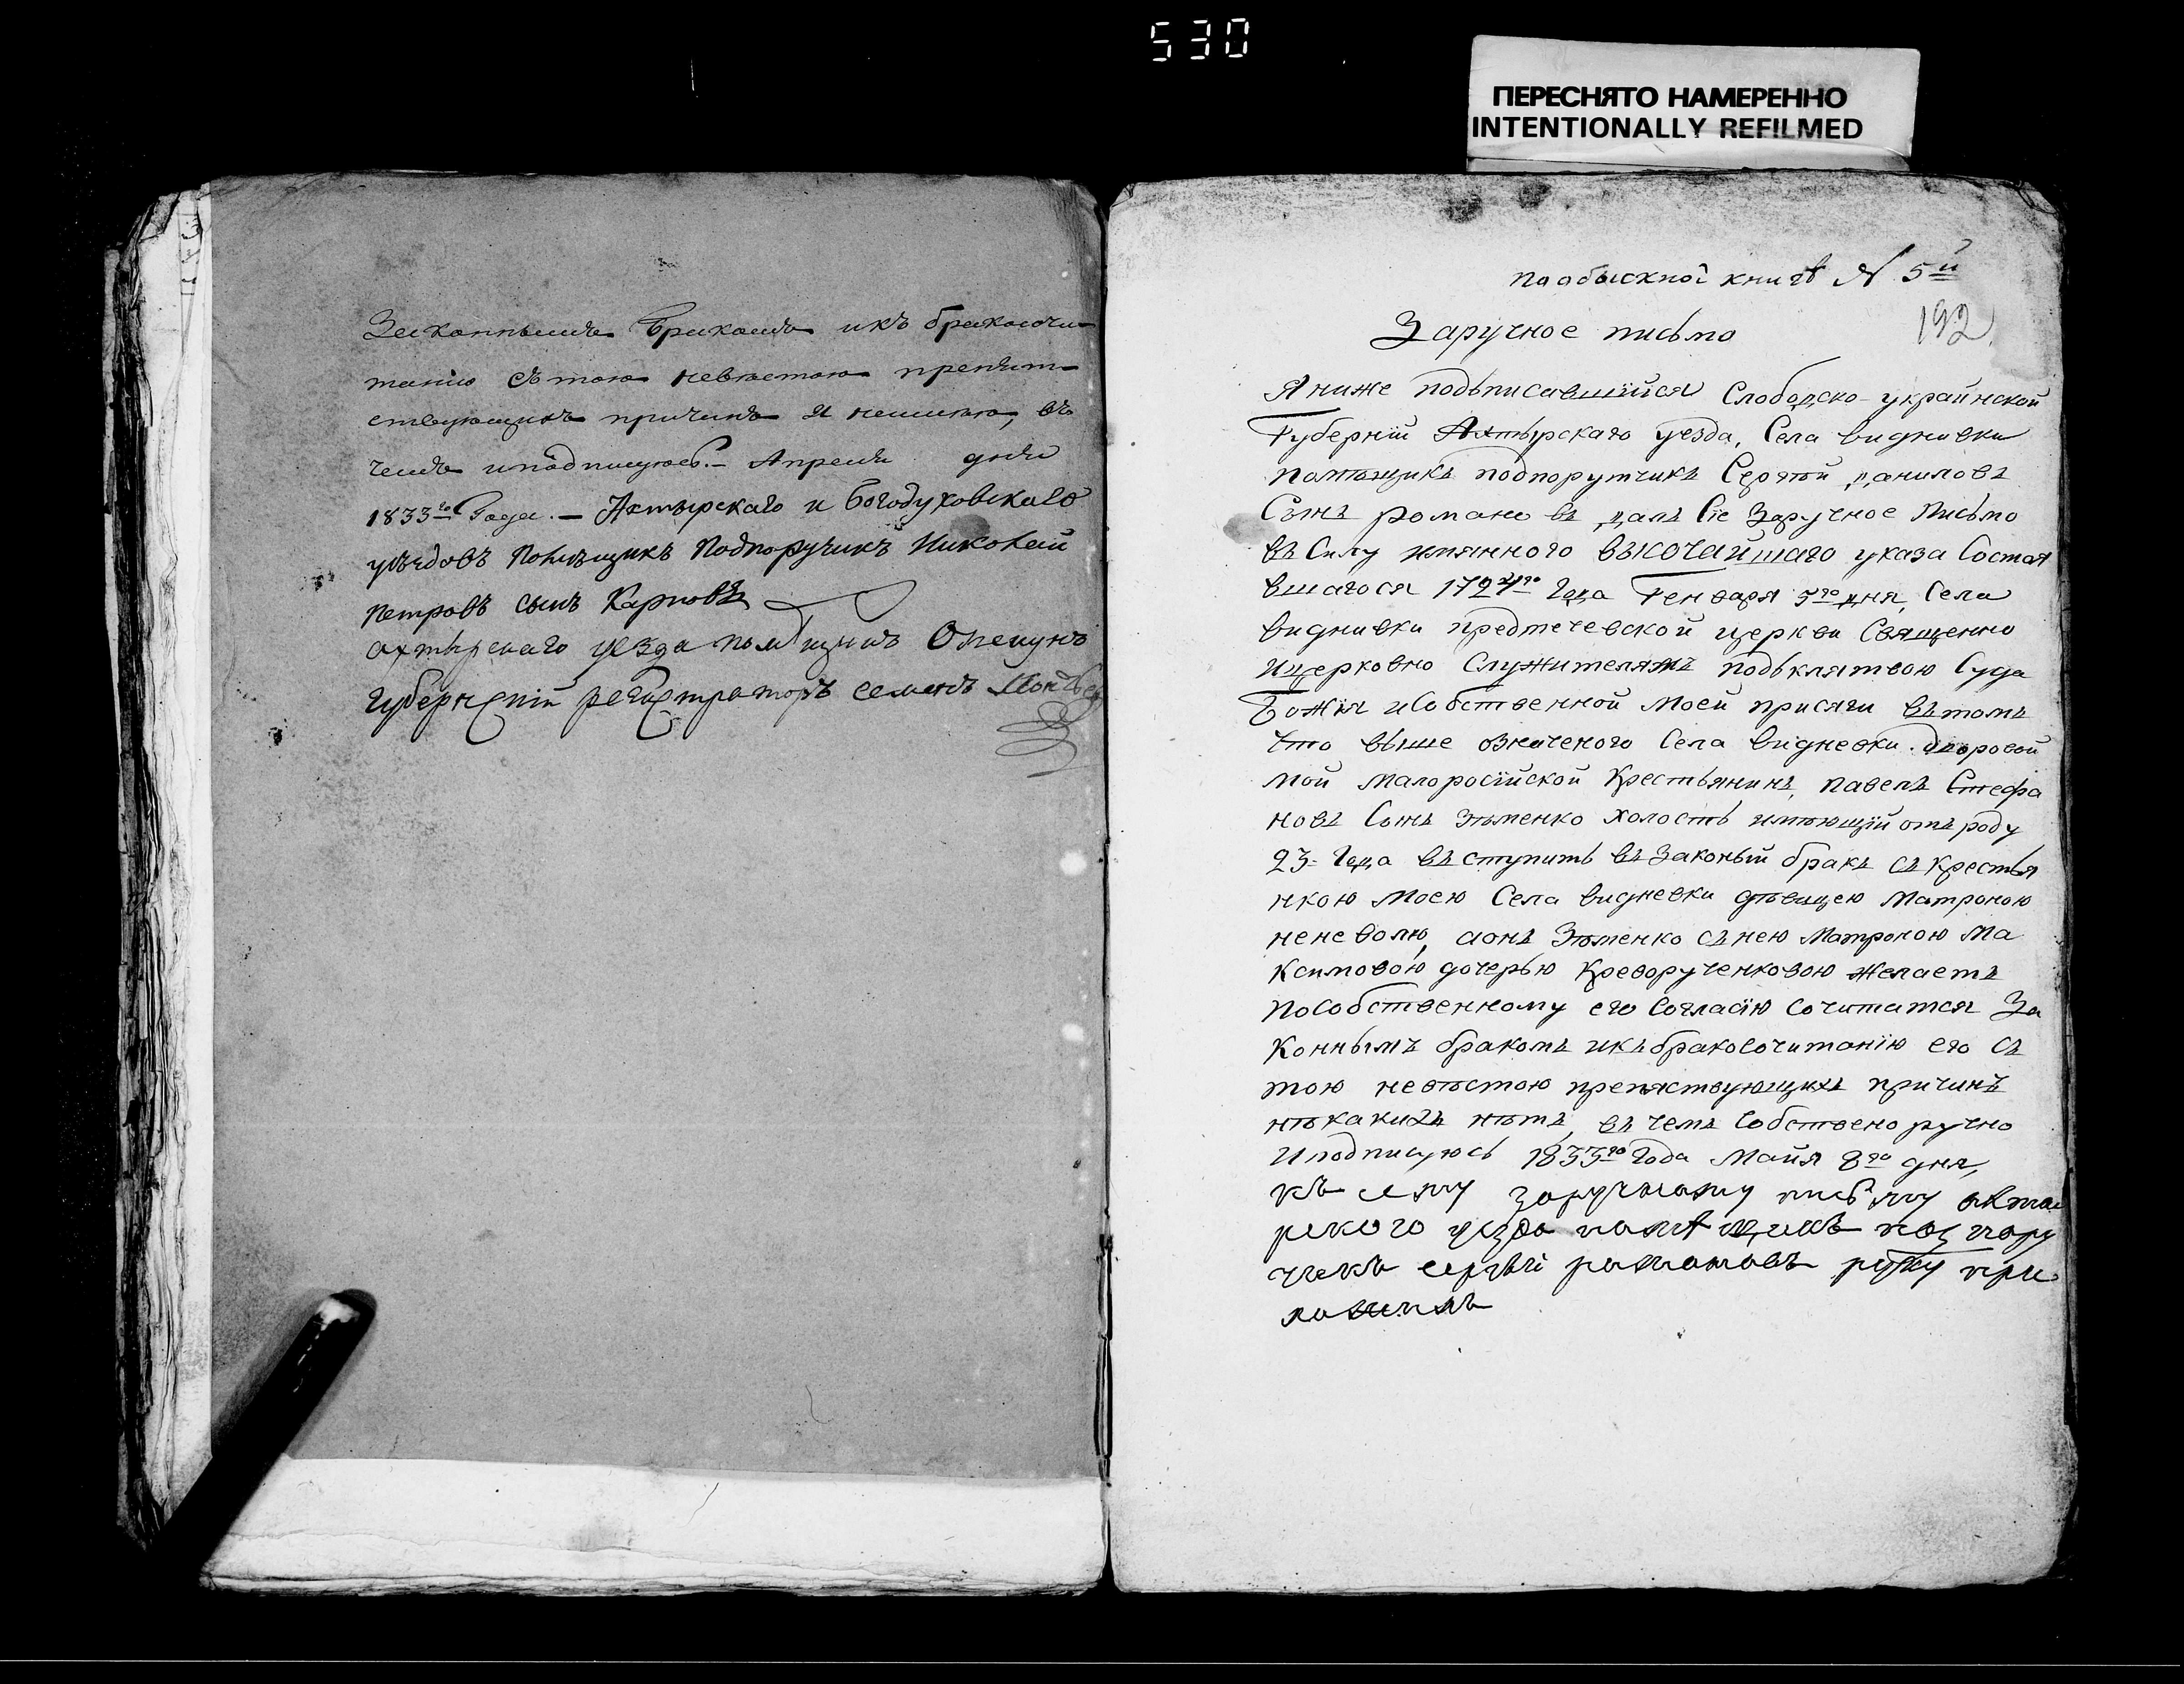 530
ПЕРЕСНЯТО НАМЕРЕННО
INTENTIONALLY REFILMED
Законнымъ бракомъ икъ бракосочи-
танію стою невестою препят-
ствующихъ причинъ я неимею, въ
чемъ иподписуюсь.- Апреля дня
1833го Года.- Ахтырскаго и Богодуховскаго
уѣздовъ Помѣщикъ Подпоручикъ Николай
Петровъ сынъ Карповъ
ахтырскаго уезда помѣщикъ Опекунъ
Губернский регистраторъ Семенъ
По обыскной книгѣ № 5й
192
Заручное письмо
Я ниже подъписавшийся Слободско-украйнской
Губерніи Ахтырскаго уезда, Села видневки
памѣщикъ подпорутчикъ Сергѣй даниловъ
Сынъ романовъ далъ Сіе Заручное Письмо
въ Силу имянного высочайшаго указа Состоя
вшагося 1724го Года Генваря 5го дня, Села
видневки предтечевской церкви Священно
ицерковно Служителямъ подъклятвою Суда
Божія иСобственной моей присяги вътомъ
Что выше означеного Села видневки дворовой
мой малоросійской Крестьянинъ, павелъ Стефа
новъ Сынъ Зѣменко холость имѣющій отъ роду
23= Года въступить въ Законый бракъ съ Крестья
нкою моею Села видневки дѣвицею Матроною
неневолю, аонъ Зѣменко съ нею Матроною Ма
ксимовою дочерью Креворученковою желаетъ
поСобственному его Согласію Сочитатся За
Коннымъ бракомъ икъбракоСочитанію его Съ
тою невѣстою препяствующихъ причинъ
нѣкакихъ нѣтъ, въ чемъ Собствено ручно
Иподписуюсь 1833го Года Майя 8го дня,
къ сему заручному писму ахты
рского уезда помѣщикъ подпору
чикъ сергѣй романовъ руку при
ложилъ